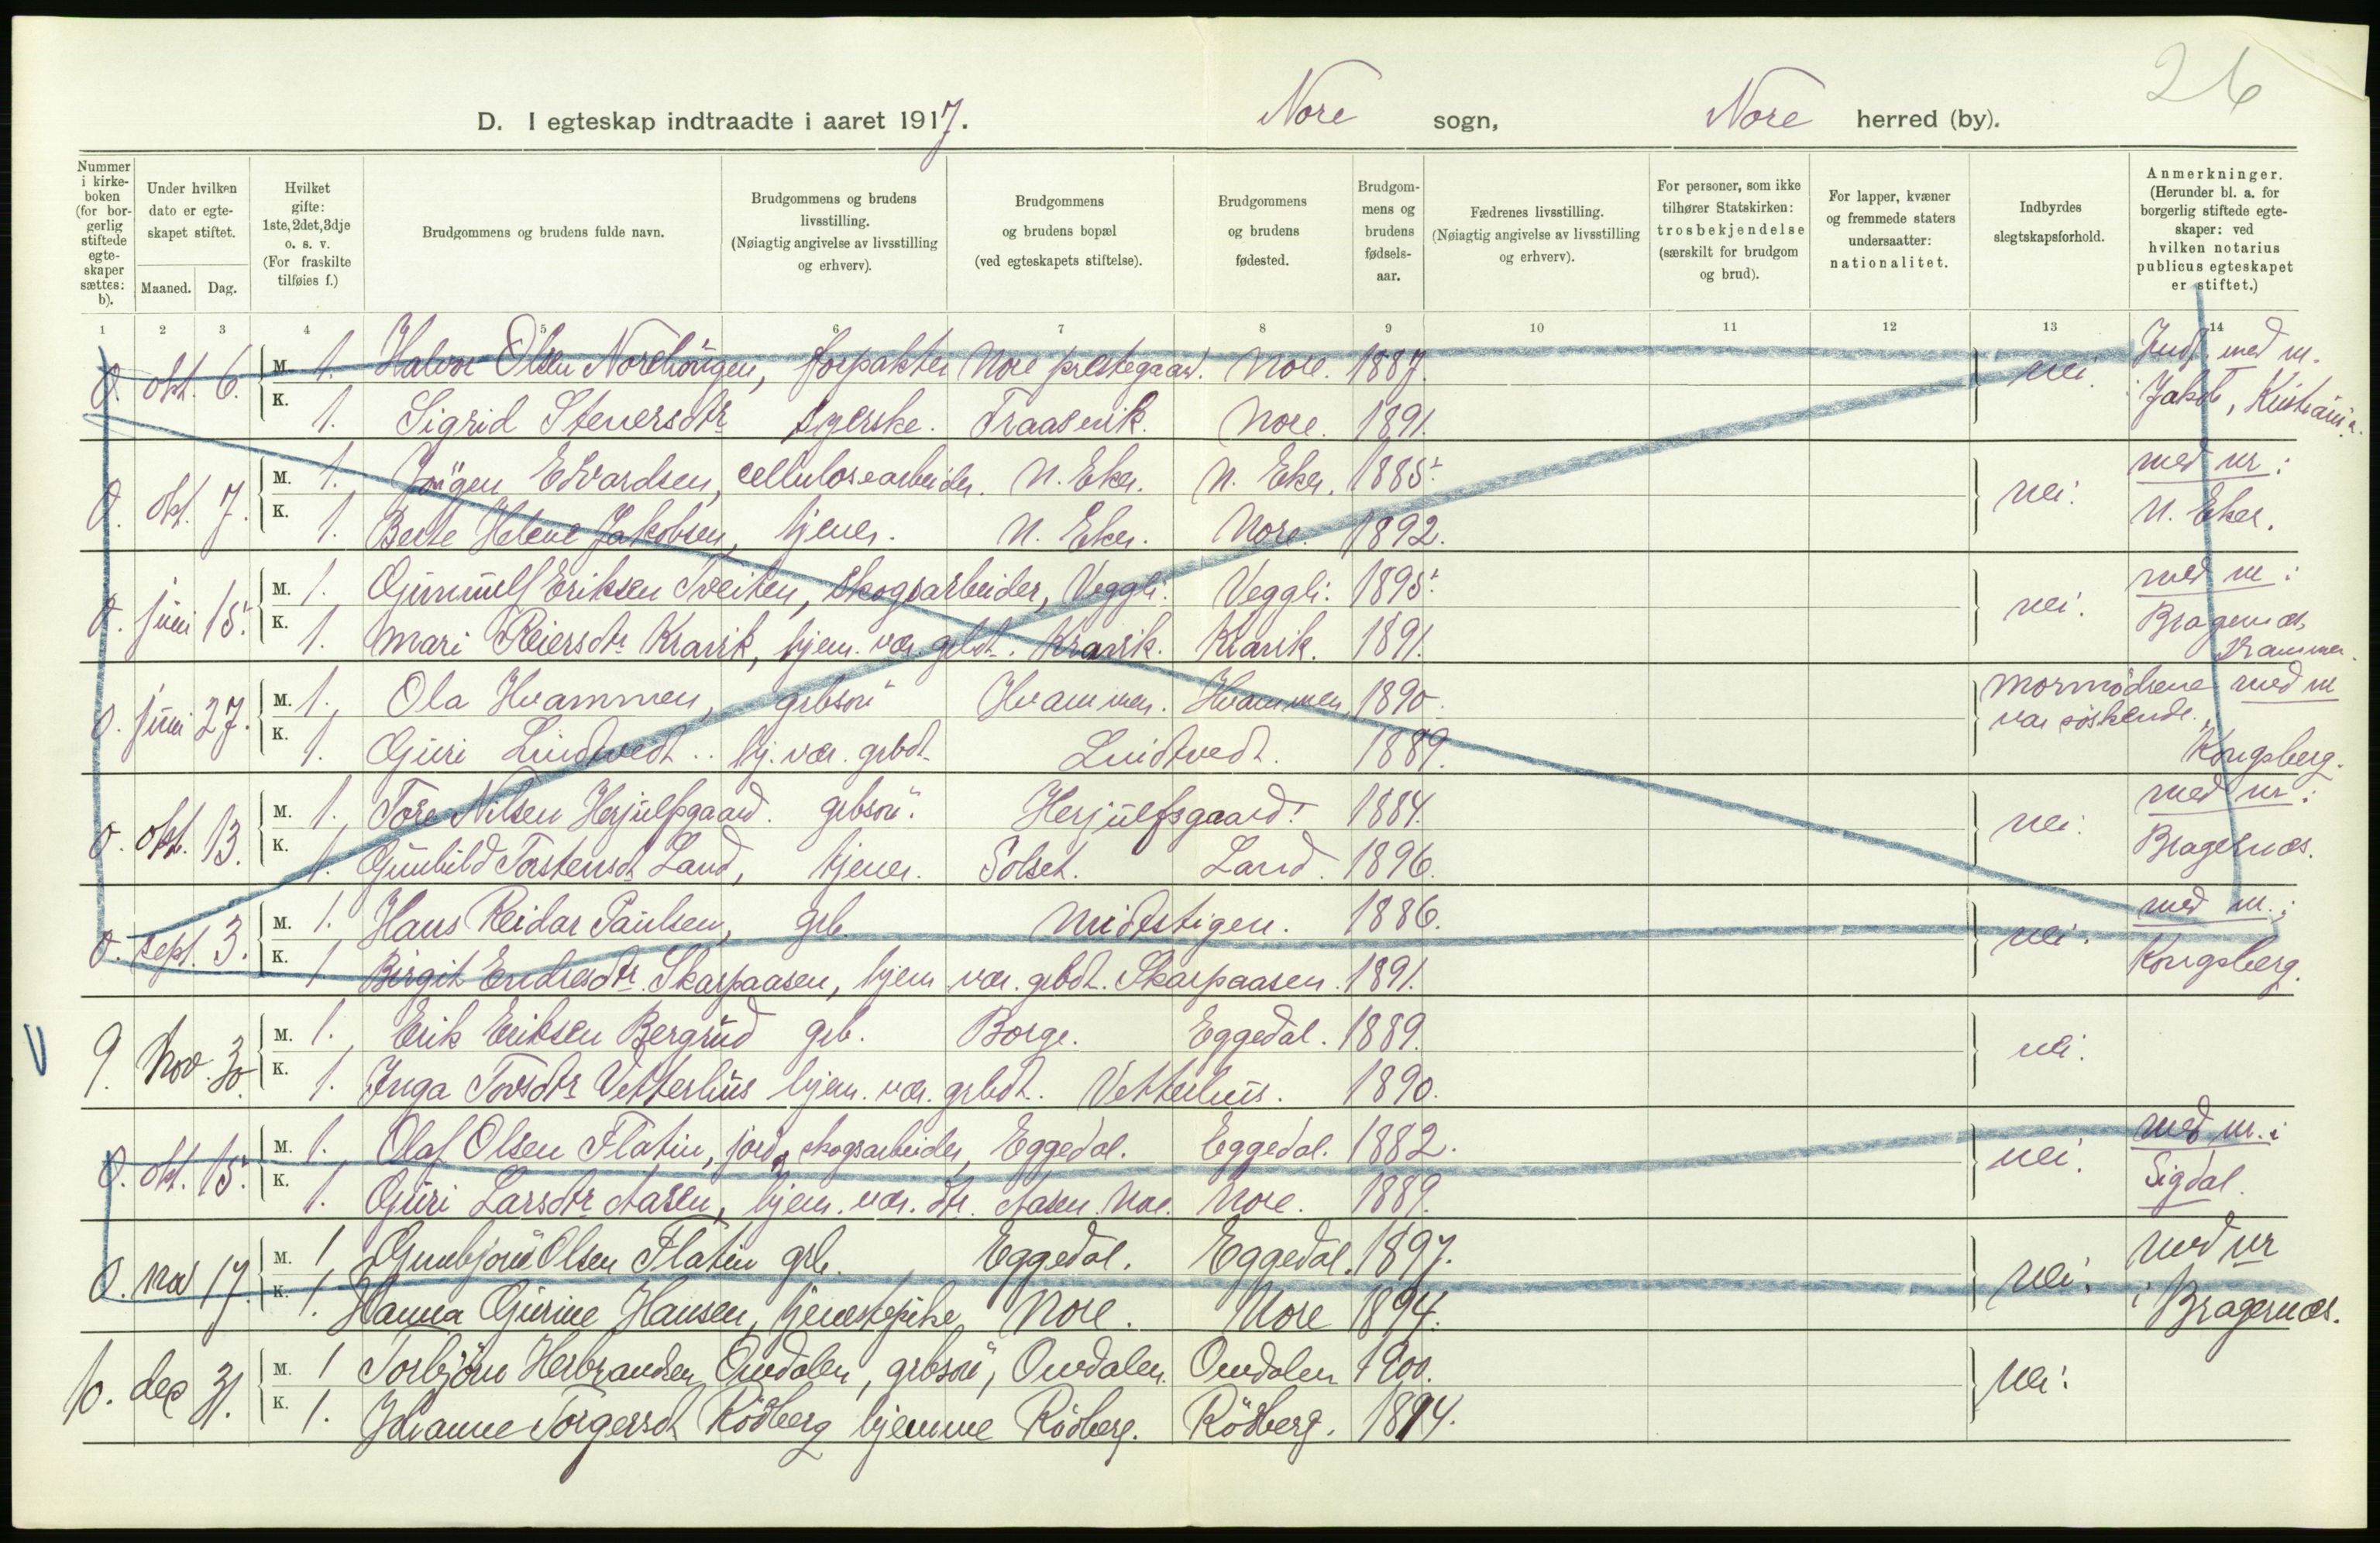 26
D. I egteskap indtraadte i aaret 1917. Nore sogn, Nore herred (by).
Nummer i kirke-boken (for bor-gerlig stiftede egte-skaper sættes: b).
Under hvilken dato er egte-skapet stiftet.
Maaned. Dag.
Hvilket gifte: 1ste, 2det, 3dje o. s. v. (For fraskilte tilføies f.)
Brudgommens og brudens fulde navn.
Brudgommens og brudens livsstilling. (Nøiagtig angivelse av livsstilling og erhverv).
Brudgommens og brudens bopæl (ved egteskapets stiftelse).
Brudgommens og brudens fødested.
Brudgom-mens og brudens fødsels-aar.
Fædrenes livsstilling. (Nøiagtig angivelse av livsstilling og erhverv).
For personer, som ikke tilhører Statskirken: trosbekjendelse (særskilt for brudgom og brud).
For lapper, kvæner og fremmede staters undersaatter: nationalitet.
Indbyrdes slegtskapsforhold.
Anmerkninger. (Herunder bl. a. for borgerlig stiftede egte-skaper: ved hvilken notarius publicus egteskapet er stiftet.)
1 2 3 4 5 6 7 8 9 10 11 12 13 14
0. okt. 6. M. 1. Halvor Olsen forpakter Nore prestegaard. Nore. 1887. nei. med nr.
K. 1. Sigrid Steversdtr syerske. Traaenik. Nore. 1891. Jakob, Kristiania.
0. okt. 7. M. 1. Jörgen Edvardsen, cellulosearbeider. N. Eker. N. Eker. 1885. nei. med nr i
K. 1. Berte Helene Jakobsen, tjener. N. Eker. Nore. 1892. N. Eker.
0. juni 15. M. 1. Gunnulf Eriksen Sveiten, skogsarbeider, Veggli. Veggli. 1895. nei. med nr i
K. 1. Mari Reiersdtr Kravik, hjem. vær. grbdt. Kravik. Kravik. 1891. Bragernæs, Drammen.
0. juni 27. M. 1. Ola Hvammen, grbsön Hvammen. Hvammen 1890. mormödrene var søskende. med nr
K. 1. Guri Lindtvedt.. hj. vær. grbdt. Lindtvedt. 1889. Kongsberg.
0. okt. 13. M. 1. Tore Nilsen Herjulfsgaard. grbsön. Herjulfsgaard. 1884. nei. med nr i
K. 1. Gunhild Torstensdt Land, tjener. Solset. Land. 1896. Bragernæs.
0. sept. 3. M. 1. Hans Reidar Paulsen, grb. Midtstigen. 1886. nei. med nr. i
K. 1 Birgit Endresdtr. Skarpaasen, hjem vær. grbdt. Skarpaasen. 1891. Kongsberg.
V 9. Nov. 30. M. 1. Erik Eriksen Bergrud grb. Borge. Eggedal. 1889. nei.
K. 1. Inga Tovsdtr Vetterhus hjem. vær. grbdt. Vetterhus. 1890.
0. okt. 15. M. 1. Olaf Olsen Flatin, jord og skogsarbeider, Eggedal. Eggedal. 1882. nei. med nr. i
K. 1. Guri Larsdtr Aasen, hjem. vær. dtr. Aasen Nore. Nore. 1889. Sigdal.
0. nov 17. M. 1 Gunbjörn Olsen Flatin grb. Eggedal. Eggedal. 1897. nei. med nr
K. 1. Hanna Gurine Hansen, tjenestepike Nore. Nore 1894. i Bragernæs.
10. des 31. M. 1 Torbjörn Herbrandsen Ouvdalen, grbsön, Ouvdalen. Ouvdalen 1900. nei.
K. 1. Johanne Torgersdt Rödberg hjemme Rödberg. Rödberg. 1894.